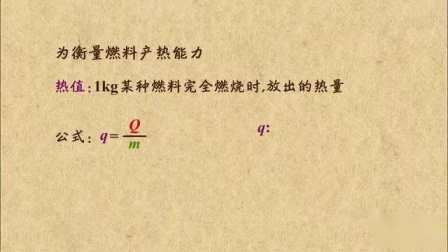 为衡量燃料产热能力
热值:1kg某种燃料完全燃烧时,放出的热量
公式: q=Q/m q: